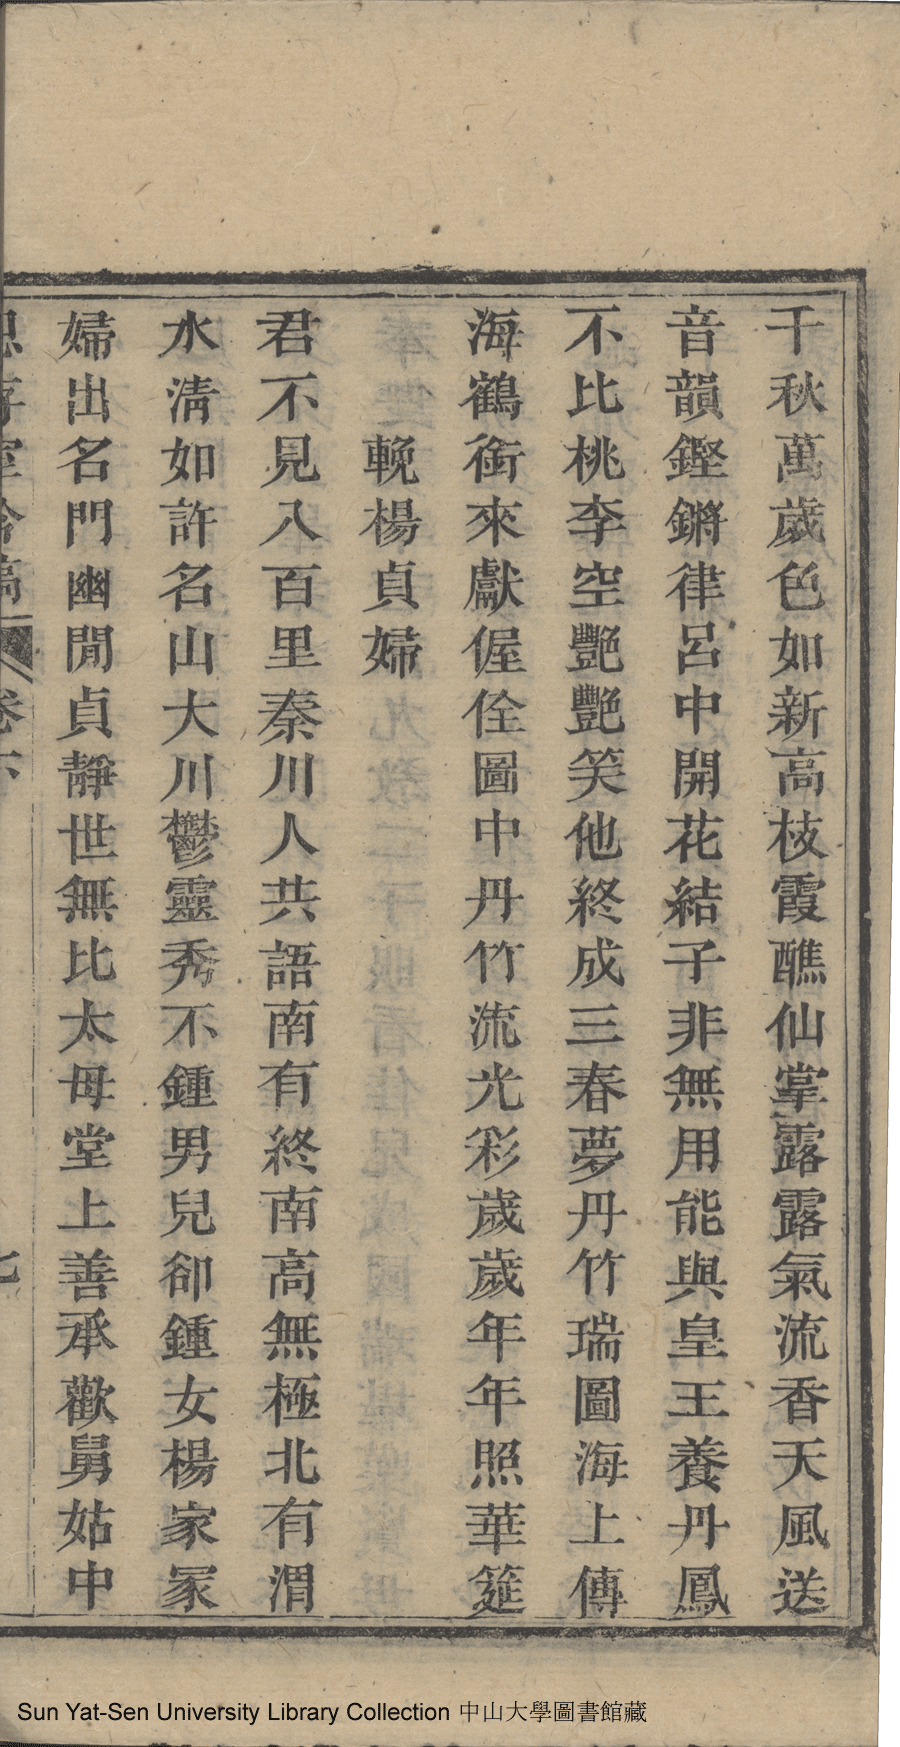 千秋萬歲色如新高枝霞醮仙掌露露氣流香天風送
音韻鏗鏘律呂中開花結子非無用能與皇王養丹鳳
不比桃李空艷艷笑他終成三春夢丹竹瑞圖海上傳
海鶴銜來獻偓佺圖中丹竹流光彩歲歲年年照華筵
輓楊貞婦
君不見八百里秦川人共語南有終南高無極北有渭
水淸如許名山大川鬱靈秀不鍾男兒卻鍾女楊家冢
婦出名門幽閒貞靜世無比太母堂上善承歡舅姑中
Sun Yat-Sen University Library Collection 中山大學圖書館藏